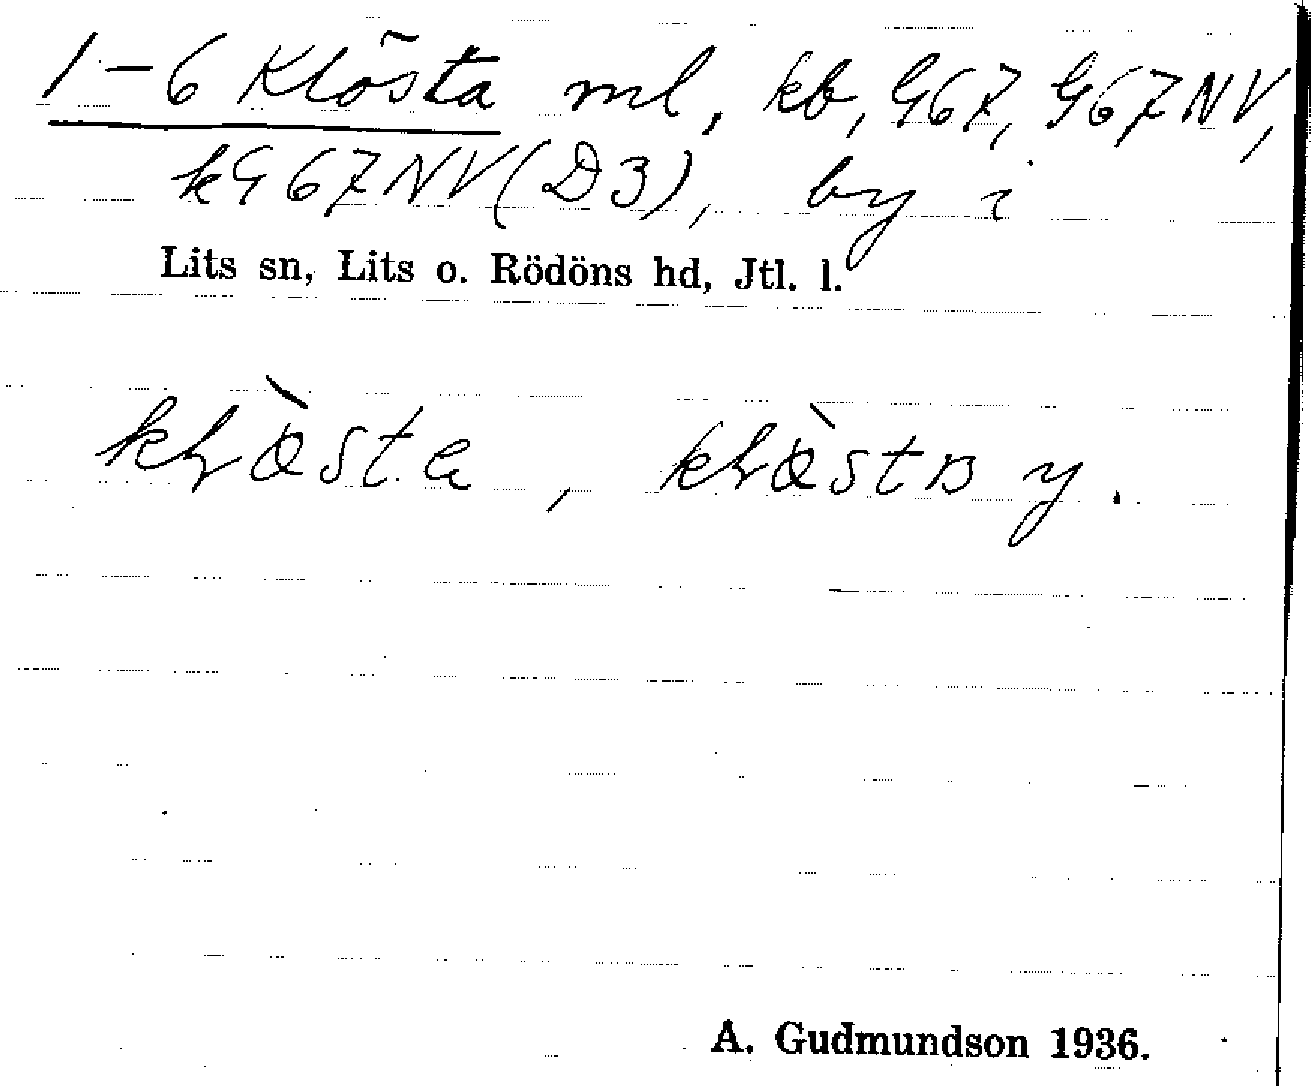 1-6 Klösta ml, kb, G67, G67NV,
kG67NV(D3), by i
Lits sn, Lits o. Rödöns hd, Jtl. l.
y.
A. Gudmundson 1936.